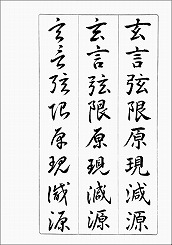 玄言弦限原現減源
玄言弦限原現減源
玄言弦限原現減源